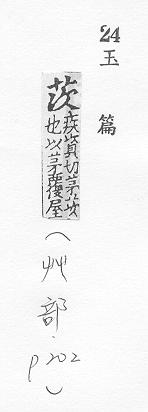 24
玉篇
茨疾資切茅茨
也以茅覆屋
（艸部．p202）